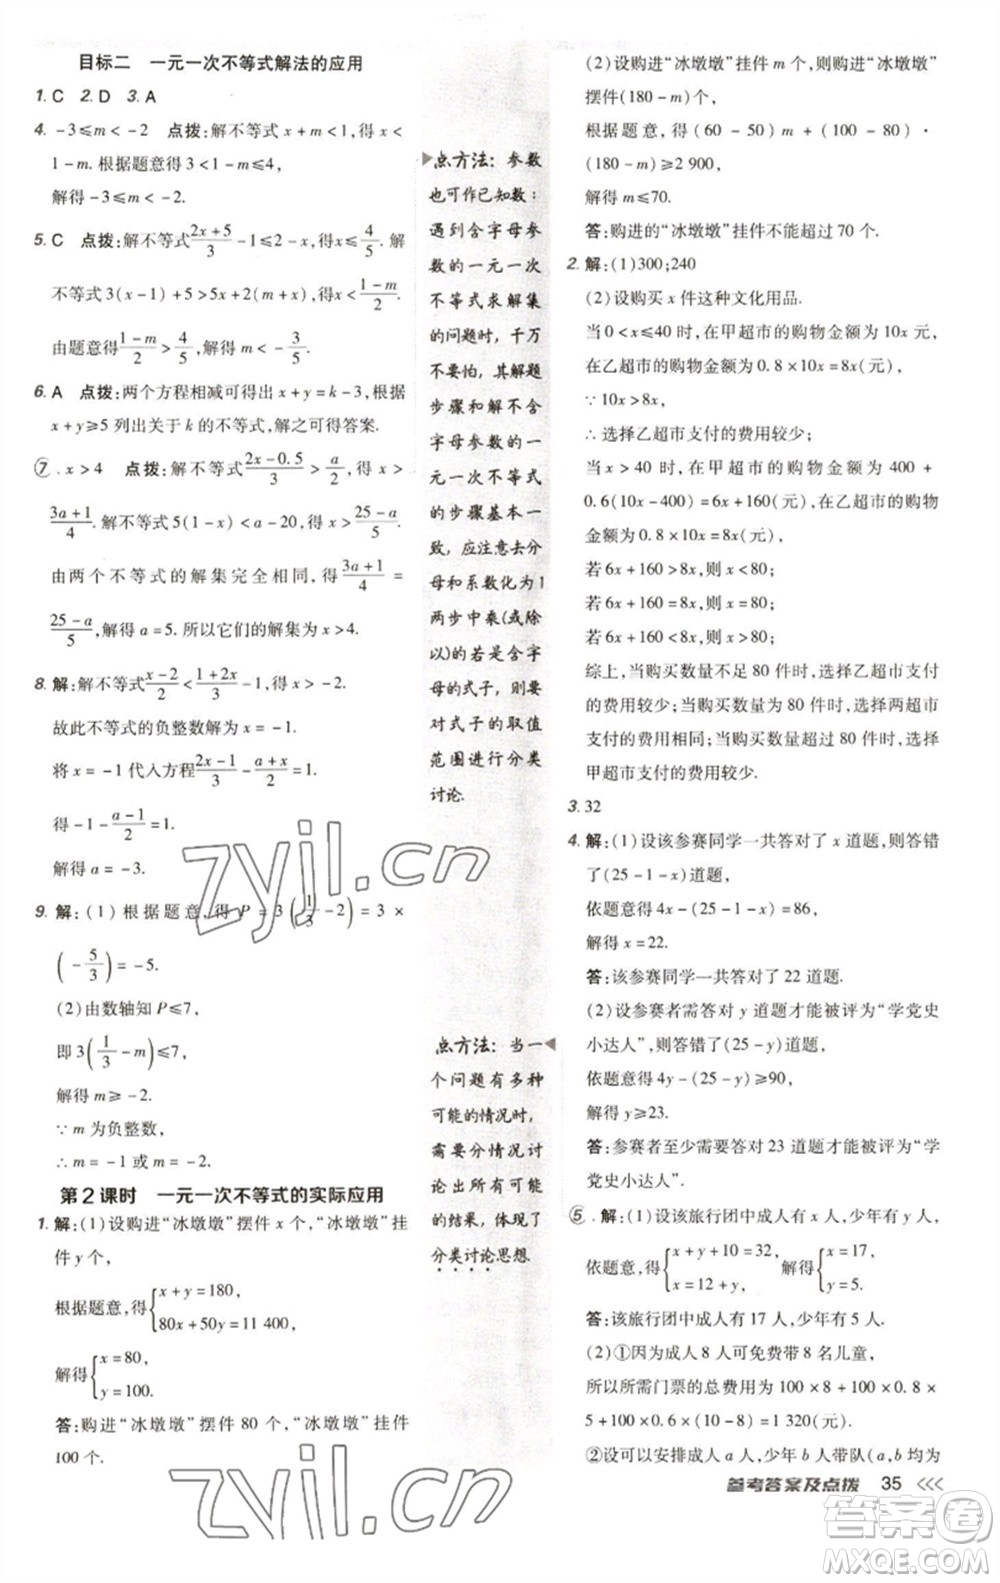 目标二 一元一次不等式解法的应用
1. C 2. D 3. A
4. -3≤m<-2 点拨:解不等式 x+m<1,得 x<
1-m. 根据题意得 3<1-m≤4,
解得 -3≤m<-2.
5. C 点拨:解不等式(2x+5)/3-1≤2-x,得 x≤4/5. 解
不等式 3(x-1)+5>5x+2(m+x),得 x<(1-m)/2.
由题意得(1-m)/2>4/5,解得 m<-3/5.
6. A 点拨:两个方程相减可得出 x+y=k-3,根据
x+y≥5 列出关于 k 的不等式,解之可得答案.
⑦. x>4 点拨:解不等式(2x-0.5)/3>a/2,得 x>
(3a+1)/4. 解不等式 5(1-x)<a-20,得 x>(25-a)/5.
由两个不等式的解集完全相同,得(3a+1)/4=
(25-a)/5,解得 a=5. 所以它们的解集为 x>4.
8. 解:解不等式(x-2)/2<(1+2x)/3-1,得 x>-2.
故此不等式的负整数解为 x=-1.
将 x=-1 代入方程(2x-1)/3-(a+x)/2=1.
得-1-(a-1)/2=1.
解得 a=-3.
9. 解:(1)根据题意,得 P=3(1/3-2)=3×
(-5/3)=-5.
(2)由数轴知 P≤7,
即 3(1/3-m)≤7,
解得 m≥-2.
∵m 为负整数,
∴m=-1 或 m=-2.
第2课时 一元一次不等式的实际应用
1. 解:(1)设购进“冰墩墩”摆件 x 个,“冰墩墩”挂
件 y 个,
根据题意,得{x+y=180,
80x+50y=11 400,
解得{x=80,
y=100.
答:购进“冰墩墩”摆件 80 个,“冰墩墩”挂件
100 个.
点方法:参数
也可作已知数:
遇到含字母参
数的一元一次
不等式求解集
的问题时,千万
不要怕,其解题
步骤和解不含
字母参数的一
元一次不等式
的步骤基本一
致,应注意去分
母和系数化为1
两步中乘(或除
以)的若是含字
母的式子,则要
对式子的取值
范围进行分类
讨论.
点方法:当一
个问题有多种
可能的情况时,
需要分情况讨
论出所有可能
的结果,体现了
分类讨论思想.
(2)设购进“冰墩墩”挂件 m 个,则购进“冰墩墩”
摆件(180-m)个,
根据题意,得(60-50)m+(100-80)·
(180-m)≥2 900,
解得 m≤70.
答:购进的“冰墩墩”挂件不能超过 70 个.
2. 解:(1)300;240
(2)设购买 x 件这种文化用品.
当 0<x≤40 时,在甲超市的购物金额为 10x 元,
在乙超市的购物金额为 0.8×10x=8x(元),
∵10x>8x,
∴选择乙超市支付的费用较少;
当 x>40 时,在甲超市的购物金额为 400+
0.6(10x-400)=6x+160(元),在乙超市的购物
金额为 0.8×10x=8x(元),
若 6x+160>8x,则 x<80;
若 6x+160=8x,则 x=80;
若 6x+160<8x,则 x>80.
综上,当购买数量不足 80 件时,选择乙超市支付
的费用较少;当购买数量为 80 件时,选择两超市
支付的费用相同;当购买数量超过 80 件时,选择
甲超市支付的费用较少.
3. 32
4. 解:(1)设该参赛同学一共答对了 x 道题,则答错
了(25-1-x)道题,
依题意得 4x-(25-1-x)=86,
解得 x=22.
答:该参赛同学一共答对了 22 道题.
(2)设参赛者需答对 y 道题才能被评为“学党史
小达人”,则答错了(25-y)道题,
依题意得 4y-(25-y)≥90,
解得 y≥23.
答:参赛者至少需要答对 23 道题才能被评为“学
党史小达人”.
⑤. 解:(1)设该旅行团中成人有 x 人,少年有 y 人,
依题意,得{x+y+10=32,
x=12+y, 解得{x=17,
y=5.
答:该旅行团中成人有 17 人,少年有 5 人.
(2)①因为成人 8 人可免费带 8 名儿童,
所以所需门票的总费用为 100×8+100×0.8×
5+100×0.6×(10-8)=1 320(元).
②设可以安排成人 a 人,少年 b 人带队(a,b 均为
参考答案及点拨 35
zyjl.cn
zyjl.cn
答案圈
MXQE.COM